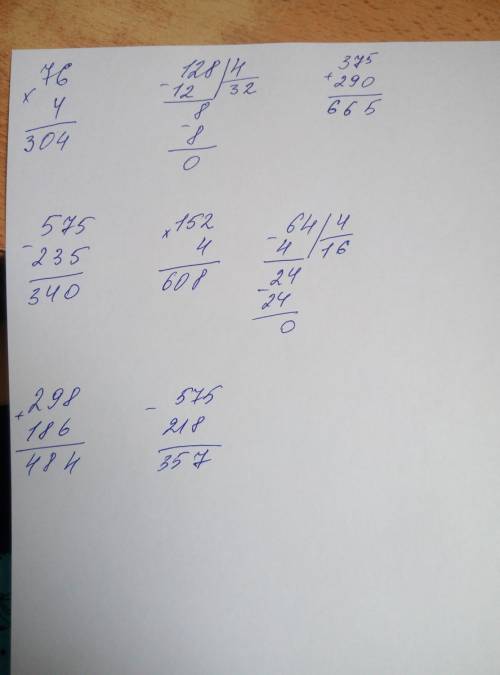 76
× 4
304
128 | 4
- 12 32
8
- 8
0
375
+ 290
665
575
- 235
340
× 152
4
608
64 | 4
- 4 16
24
- 24
0
298
+ 186
484
- 575
218
357